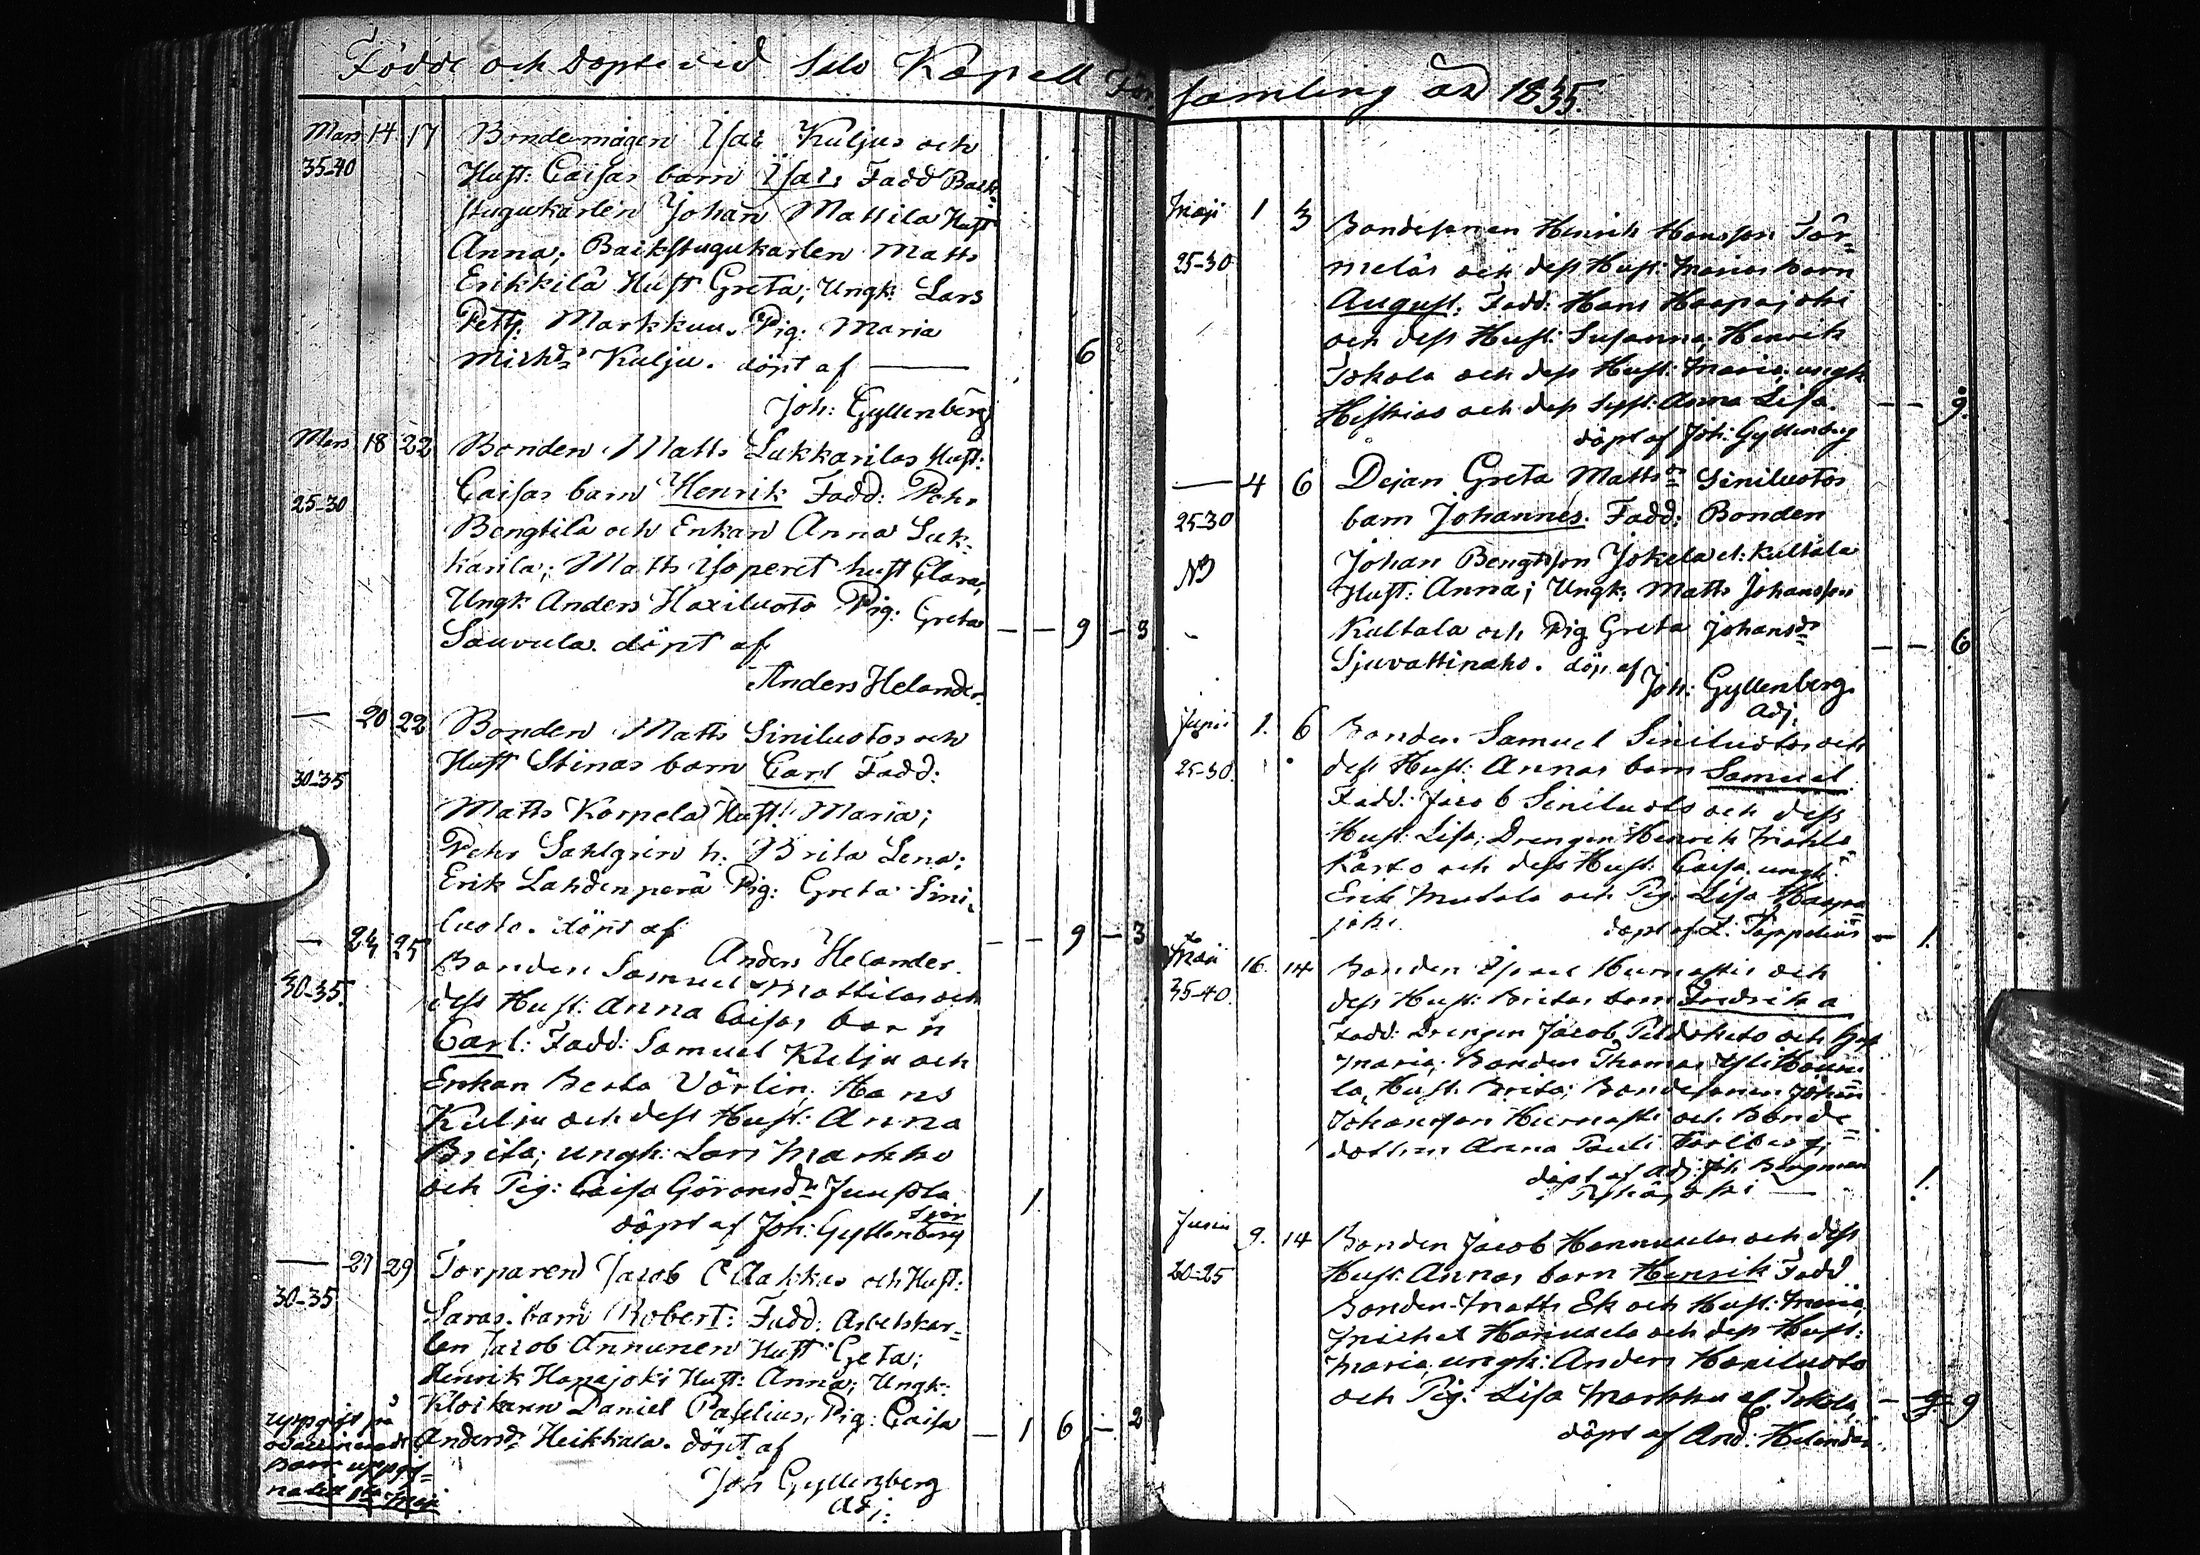 Födde och Döpte vid Salo Kapell För-
samling år 1835.
Mars 14 17 Bondemågen Isac Kuljus och
35-40 Hust: Caisas barn Isac, Fadd Back-
stugukarlen Johan Mattila Hust
Anna; Backstugukarlen Matts
Erikkilä Hust Greta; Ungk: Lars
Petts. Markkuu. Pig: Maria
Michsdr Kulju. döpt af — 6
Joh: Gyllenberg
Mars 18 22 Bonden Matts Lukkarilas Hust:
25-30 Caisas barn Henrik Fadd: Pehr
Bengtilä och Enkan Anna Luk-
karila; Matts Isoperet hust Clara,
Ungk: Anders Haxiluoto Pig: Greta
Sauvula. döpt af — — 9 — 3
Anders Helander.
— 20 22 Bonden Matts Siniluotos och
30-35 Hust Stinas barn Carl Fadd:
Matts Korpela Hust: Maria;
Pehr Sahlgrin h: Brita Lena;
Erik Lahdenperä Pig: Greta Sini-
luoto. döpt af — — 9 — 3
Anders Helander.
— 24 25 Bonden Samuel Mattilas och
30-35. dess Hust: Anna Caisas barn
Carl: Fadd: Samuel Kulju och
Enkan Beata Vörlin; Hans
Kulju och dess Hust: Anna
Brita; ungk: Lars Markku
och Pig: Caisa Göransdr Juusola 1
döpt af Joh: Gyllenberg
— 27 29 Torparen Jacob Claskas och Hust:
30-35 Saras barn Robert: Fadd: Arbetskar-
len Jacob Annunen Hust Greta;
Henrik Hapajoki Hust: Anna; Ungk:
Klockaren Daniel Pazelius, Pig: Caisa
Andersdr Heikkala. döpt af — 1 6 — 2
Joh Gyllenberg
Adj:
uppgift på
barn uppgif-
Maji 1 3 Bondesonen Henrik Hansson Tör-
25-30 mälas och dess Hust: Marias barn
August: Fadd: Hans Haapajoki
och dess Hust: Susanna; Henrik
Jokela och dess Hust: Maria, ungk:
Hiskias och dess Syst: Anna Lisa. — — 9.
döpt af Joh: Gyllenberg
— 4 6 Dejan Greta Mattsdr Siniluotos
25-30 barn Johannes. Fadd: Bonden
NB Johan Bengtsson Jokela el: Kultala
Hust: Anna; Ungk: Matts Johansson
Kultala och Pig Greta Johansdr
Sjuvattinaho. döp. af — — 6
Joh: Gyllenberg.
Adj.
Junii 1. 6 Bonden Samuel Siniluotos och
25-30. dess Hust: Annas barn Samuel.
Fadd: Jacob Siniluoto och dess
Hust: Lisa; Drengen Henrik
och dess Hust: Caisa; ungk:
Erik Mutala och Pig: Lisa Haapa-
joki. döpt af Z: Toppelius — 1.
Maji 16. 14 Bonden Isac Hurnastis och
35-40. dess Hust: Britas barn Fredrika
Fadd: Drengen Jacob Peldokato och Hust
Maria; Bonden Thomas Yli Hannu-
la, Hust: Brita; Bondesonen Johan
Johansson Hurnasti och Bonde-
dottren Anna
döpt af Adj: Joh Bergman
Pyhäjoki — 1.
Junii 9. 14 Bonden Jacob Hannukselas och dess
20-25 Hust: Annas barn Henrik Fadd
Bonden Matts Ek och Hust: Maria,
Michel Hanuksela och dess Hust:
Maria, ungk: Anders Haxiluoto
och Pig: Lisa Markku el: Jokela, — 9
döpt af And: Helander.